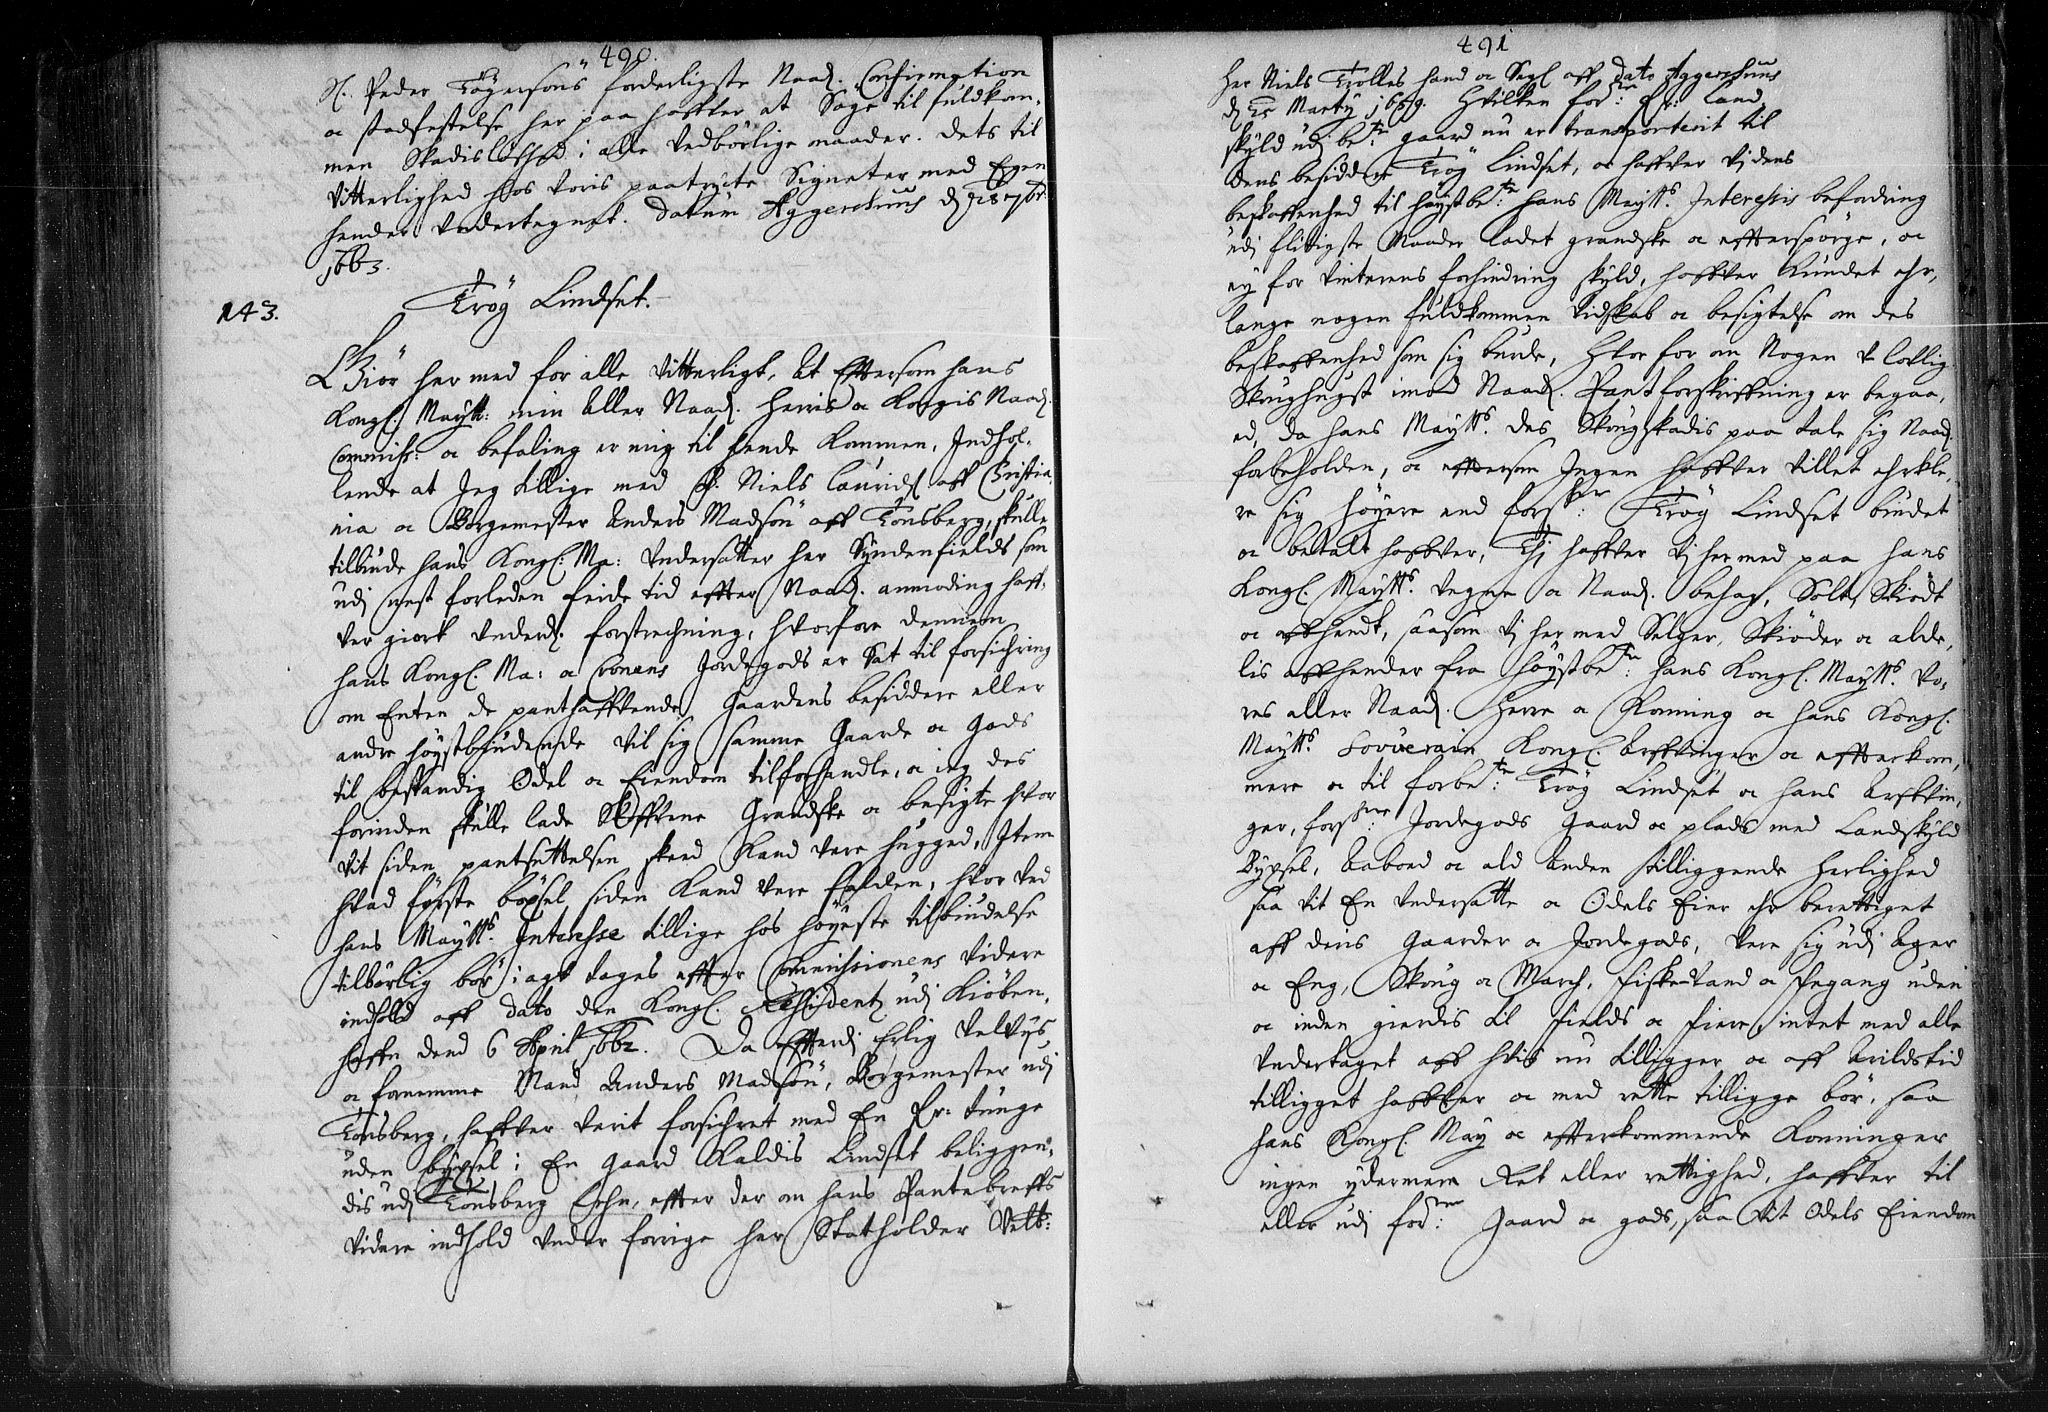 490.
Sl. Peder Tøgersøns forderligste Naad. Confirmation
oc stadfestelse her paa haffver at Søge til fuldkom-
men Skadisløshed i alle vedbørlige maader. Dets til
Vitterlighed hos voris paatrycte Signeter med Egen
hender Undertegnet. Datum Aggershuus d. 28 7br:
1663.
143.
Trøg Lindset.
Giør her med for alle Vitterligt, At Eftersom hans
Kongl. Maytt: min Aller Naad. Herris oc Kongis Naad.
Commiss: oc befaling er mig til hende kommen, Indhol-
lende at Jeg tillige med H. Niels Laurids: aff Christia-
nia oc Borgemester Anders Madsøn aff Tonsberg, skulle
tilbiude hans Kongl. Ma: Undersatter her Syndenfields som
udj nest forleden feide tid effter Naad. anmoding haff-
ver giort underd. forstrechning, hvorfore dennem
hans Kongl. Ma: oc Cronens Jordegods er Sat til forsichring
om Enten de panthaffvende, Gaardens besiddere eller
andre høystbiudende vil sig samme Gaarde oc Gods
til bestandig Odel oc Eiendom tilforhandle, oc ieg des
forinden skulle lade Skoffvene Grandske oc besigte hvor
vit siden pantsettelsen skeed Kand vere hugged, Item
hvad første bøxsel siden Kand vere falden, hvor ved
hans Maytts. Interesse tillige hos høyeste tilbiudelse
tilbørlig bør i agt tages effter Commissionens videre
indhold aff dato den Kongl. Residentz udj Kiøben-
haffn dend 6 April 1662. Da efterdj Erlig velvys
oc fornemme Mand Anders Madsøn, Borgemester udj
Tonsberg, haffver verit forsichret med En Fr: tunge
uden byxsel i En Gaard kaldis Lindset beliggen-
dis udj Tonsberg Lehn, effter der om hans Pantebreffs
videre indhold under forrige her Statholder Velb:
491
Her Niels Trolles hand oc Segl aff Dato Aggershuus
d. Marty 1659. Hvilken forne: Fr: Land-
skyld udj bete: gaard nu er transporterit til
dens besiddere Trøg Lindset, oc haffver Vj dens
beskaffenhed til høystbete: hans Maytts. Interessis befordring
udj flitigste Maader ladet grandske oc effterspørge, oc
ey for vinterens forhindring skyld, haffver kundet ehr-
lange nogen fuldkommen vidskab oc besigtelse om des
beskaffenhed som sig burde, Hvor for om Nogen u-lovlig
Skoughugst imod Naad. Pantforskriffning er begaa-
ed, da hans Maytts. des Skougskadis paa tale sig Naad.
forbeholden, oc efftersom Ingen haffver villet ehrkle-
re sig høyere end forsne: Trøg Lindset biudet
oc betalt haffver, Thj haffver Vj hermed paa hans
Kongl. Maytts. Vegne oc Naad. behag, Solt, Skiødt
oc affhendt, saasom Vj her med Selger, Skiøder oc alde-
lis affhender fra høystbete: hans Kongl. Maytts. vo-
res aller Naad. Herre oc Konning oc hans Kongl.
Maytts. Souverain Kongl. Arffvinger oc effterkom-
mere oc til forbete: Trøg Lindset oc hans Arffvin-
ger, forsne: Jordegods Gaard oc plads med Landskyld
Byxsel, Aaboed oc ald Anden tilliggende Herlighed
saa vit En Undersatte oc Odels Eier ehr berettiget
aff deris Gaarder oc Jordegods, vere sig udj Ager
oc Eng, Skoug oc March, Fiskevand oc Fegang uden
oc inden gierdis til fields oc fiere, intet med alle
Undertaget aff hvis nu tilligger oc aff Arildstid
tilligget haffver oc med rette tilligge bør, saa
hans Kongl. May oc efterkommende Konninger
ingen ydermere Ret eller rettighed, haffver til
eller udj forne: Gaard oc gods, saa Vit Odels Eiendom